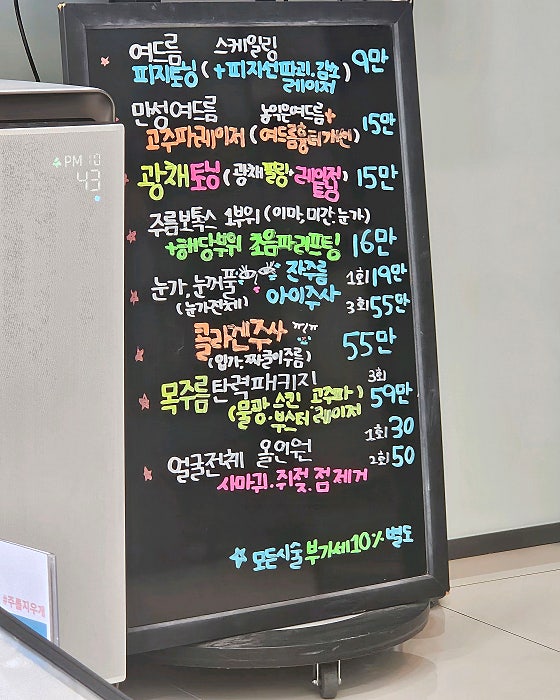 여드름 스케일링
피지토닝 (+피지선파괴.감소 레이저) 9만
만성여드름 농익은여드름+
고주파레이저 (여드름흉터개선) 15만
광채토닝 (광채필링+레이저토닝) 15만
주름보톡스 1부위 (이마, 미간, 눈가)
+해당부위 초음파리프팅 16만
눈가, 눈꺼풀 잔주름 1회 19만
(눈가전체) 아이주사 3회 55만
콜라겐주사 55만
(입가, 짜글이주름)
목주름탄력패키지 3회
(물광.스킨부스터.고주파레이저) 59만
얼굴전체 올인원 1회 30
2회 50
사마귀.쥐젖.점제거
모든시술 부가세10% 별도
PM 10
43
#주름지우개